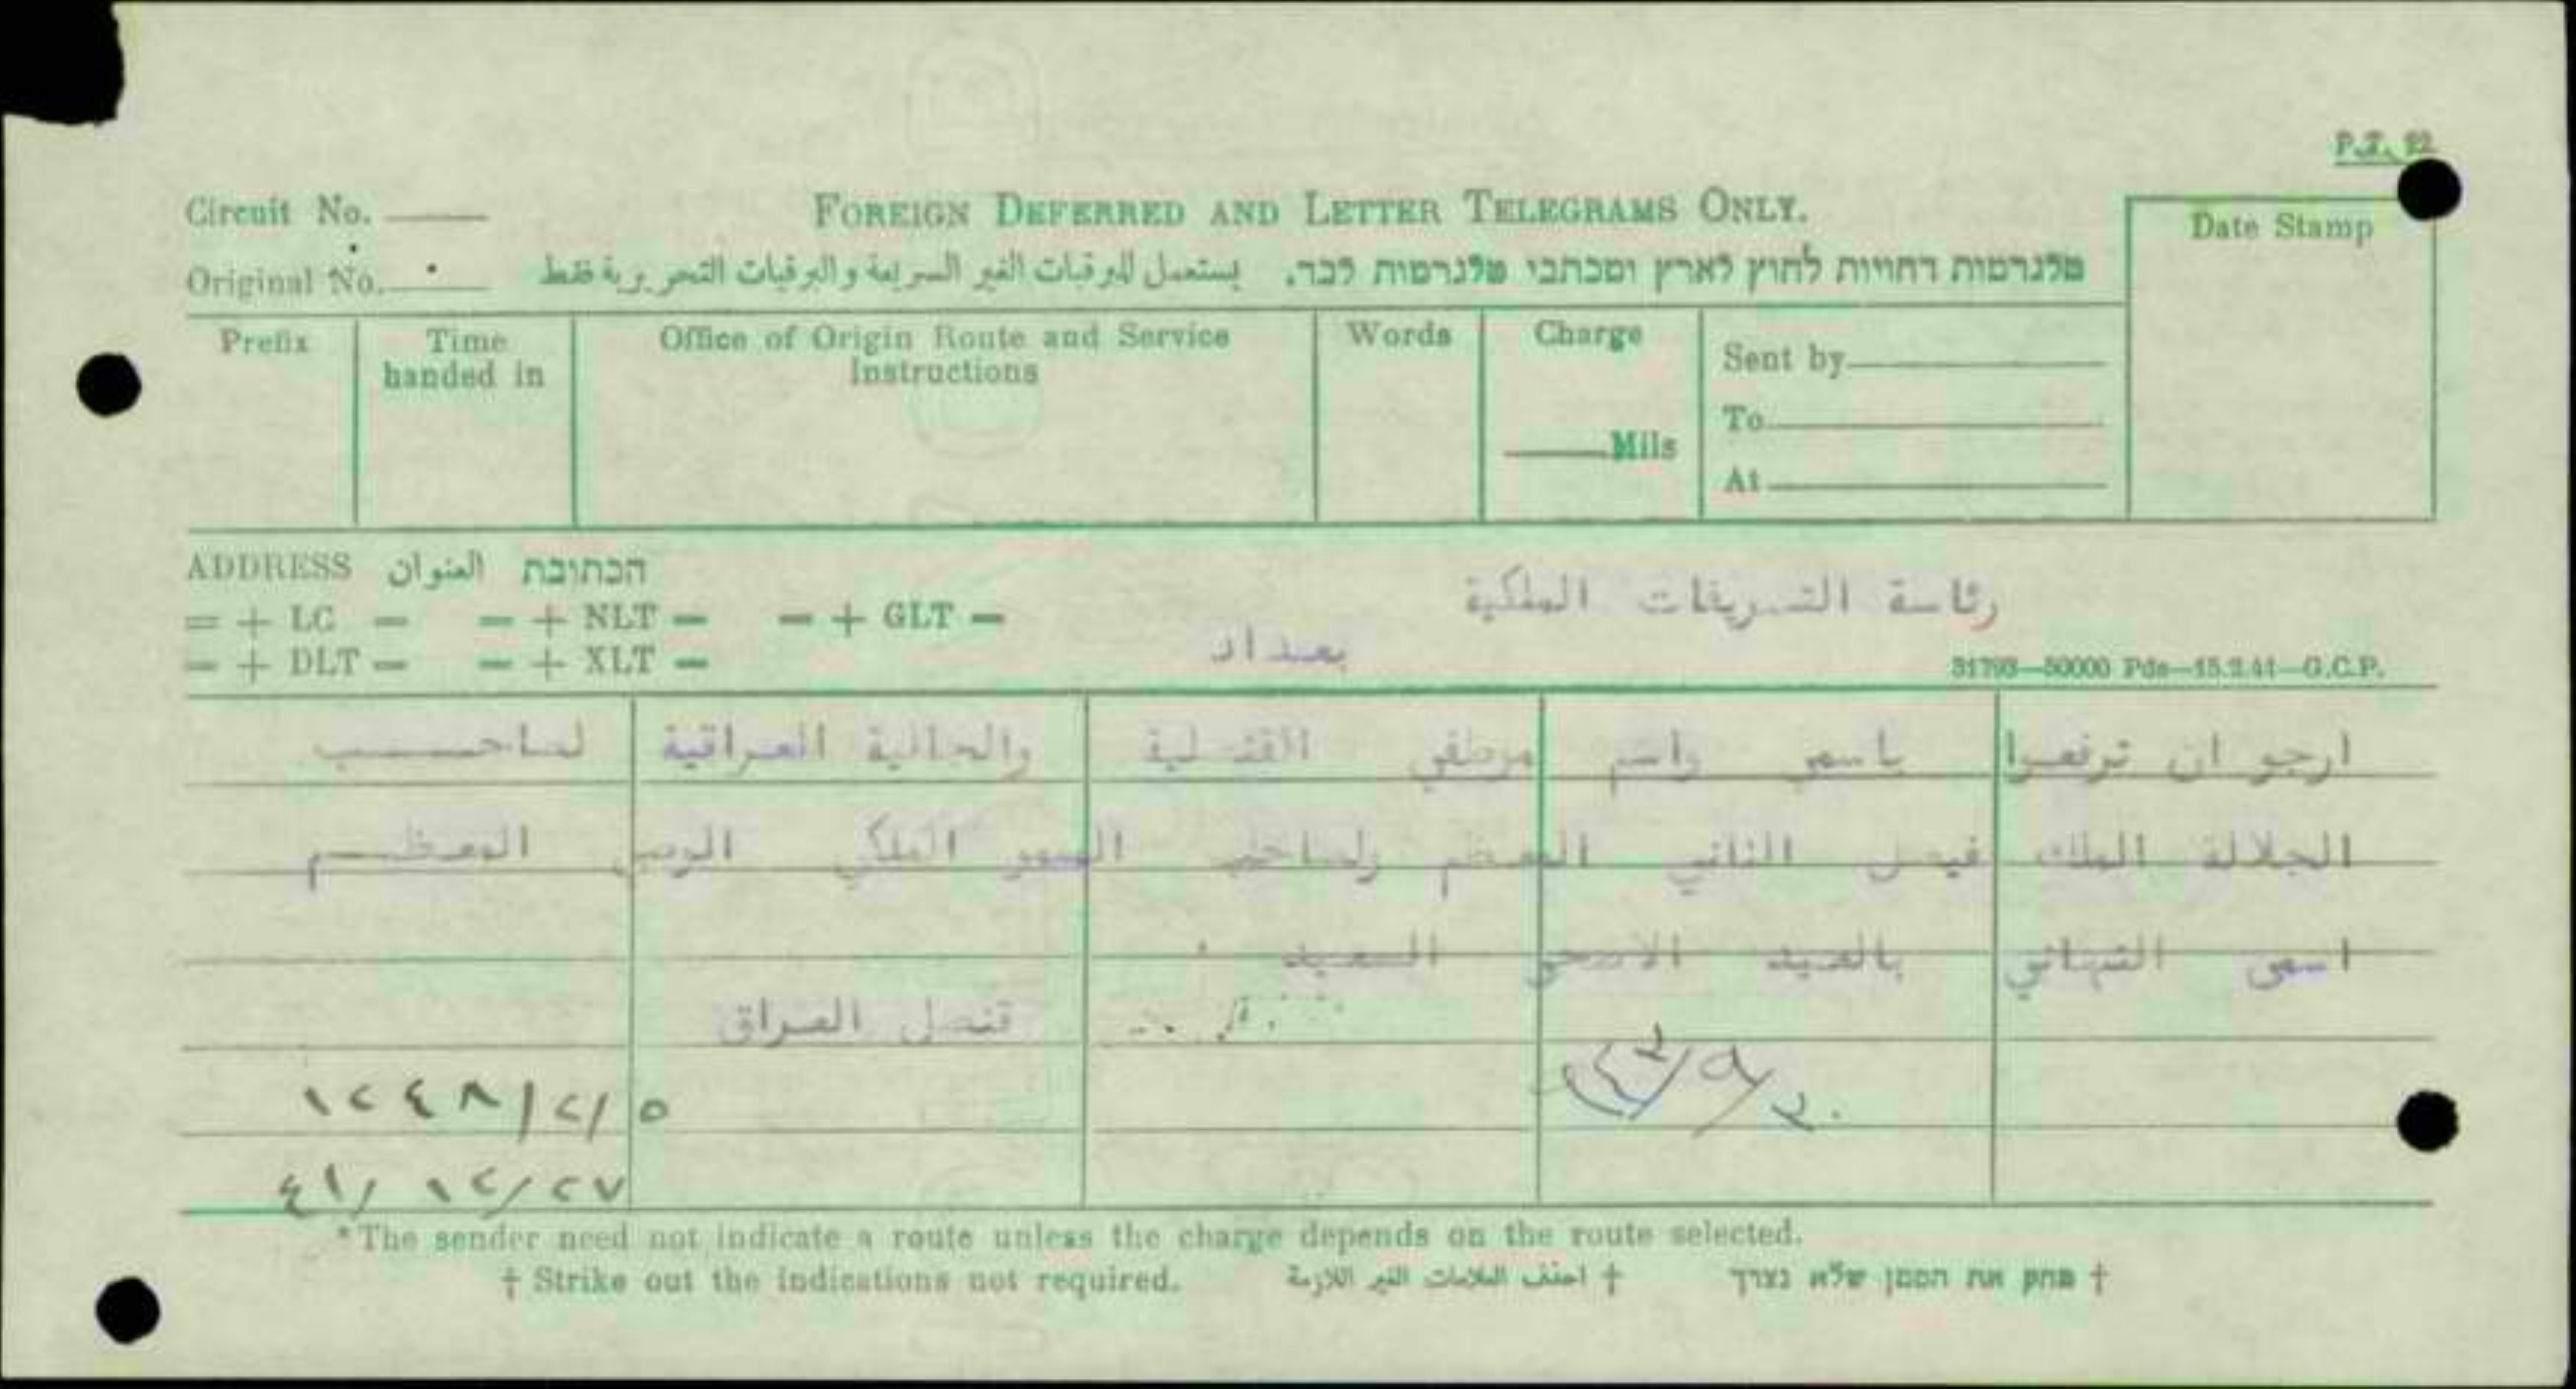 P.T. 92
Circuit No.
FOREIGN DEFERRED AND LETTER TELEGRAMS ONLY.
Date Stamp
Original No.
يستعمل للبرقيات الغير السريعة والبرقيات التحريرية فقط
טלגרמות דחויות לחוץ לארץ ומכתבי טלגרמות לבד.
Prefix
Time handed in
Office of Origin Route and Service Instructions
Words
Charge
Mils
Sent by
To
At
ADDRESS العنوان הכתובת
= + LC = = + NLT = = + GLT =
= + DLT = = + XLT =
رئاسة التشريفات الملكية
بغداد
31793—50000 Pds—15.2.41—G.C.P.
ارجو ان ترفعوا باسمي واسم موظفي القنصلية والجالية العراقية لصاحب
الجلالة الملك فيصل الثاني المعظم ولصاحب السمو الملكي الوصي المعظم
اسمى التهاني بالعيد الاضحى السعيد .
قنصل العراق
١٢٤٨/٢/٥
٤١/ ١٢/٢٧
*The sender need not indicate a route unless the charge depends on the route selected.
† Strike out the indications not required.
† احذف العلامات الغير اللازمة
† מחק את הסמן שלא נצרך